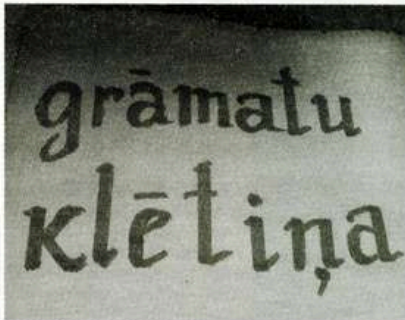 grāmatu
klētiņa